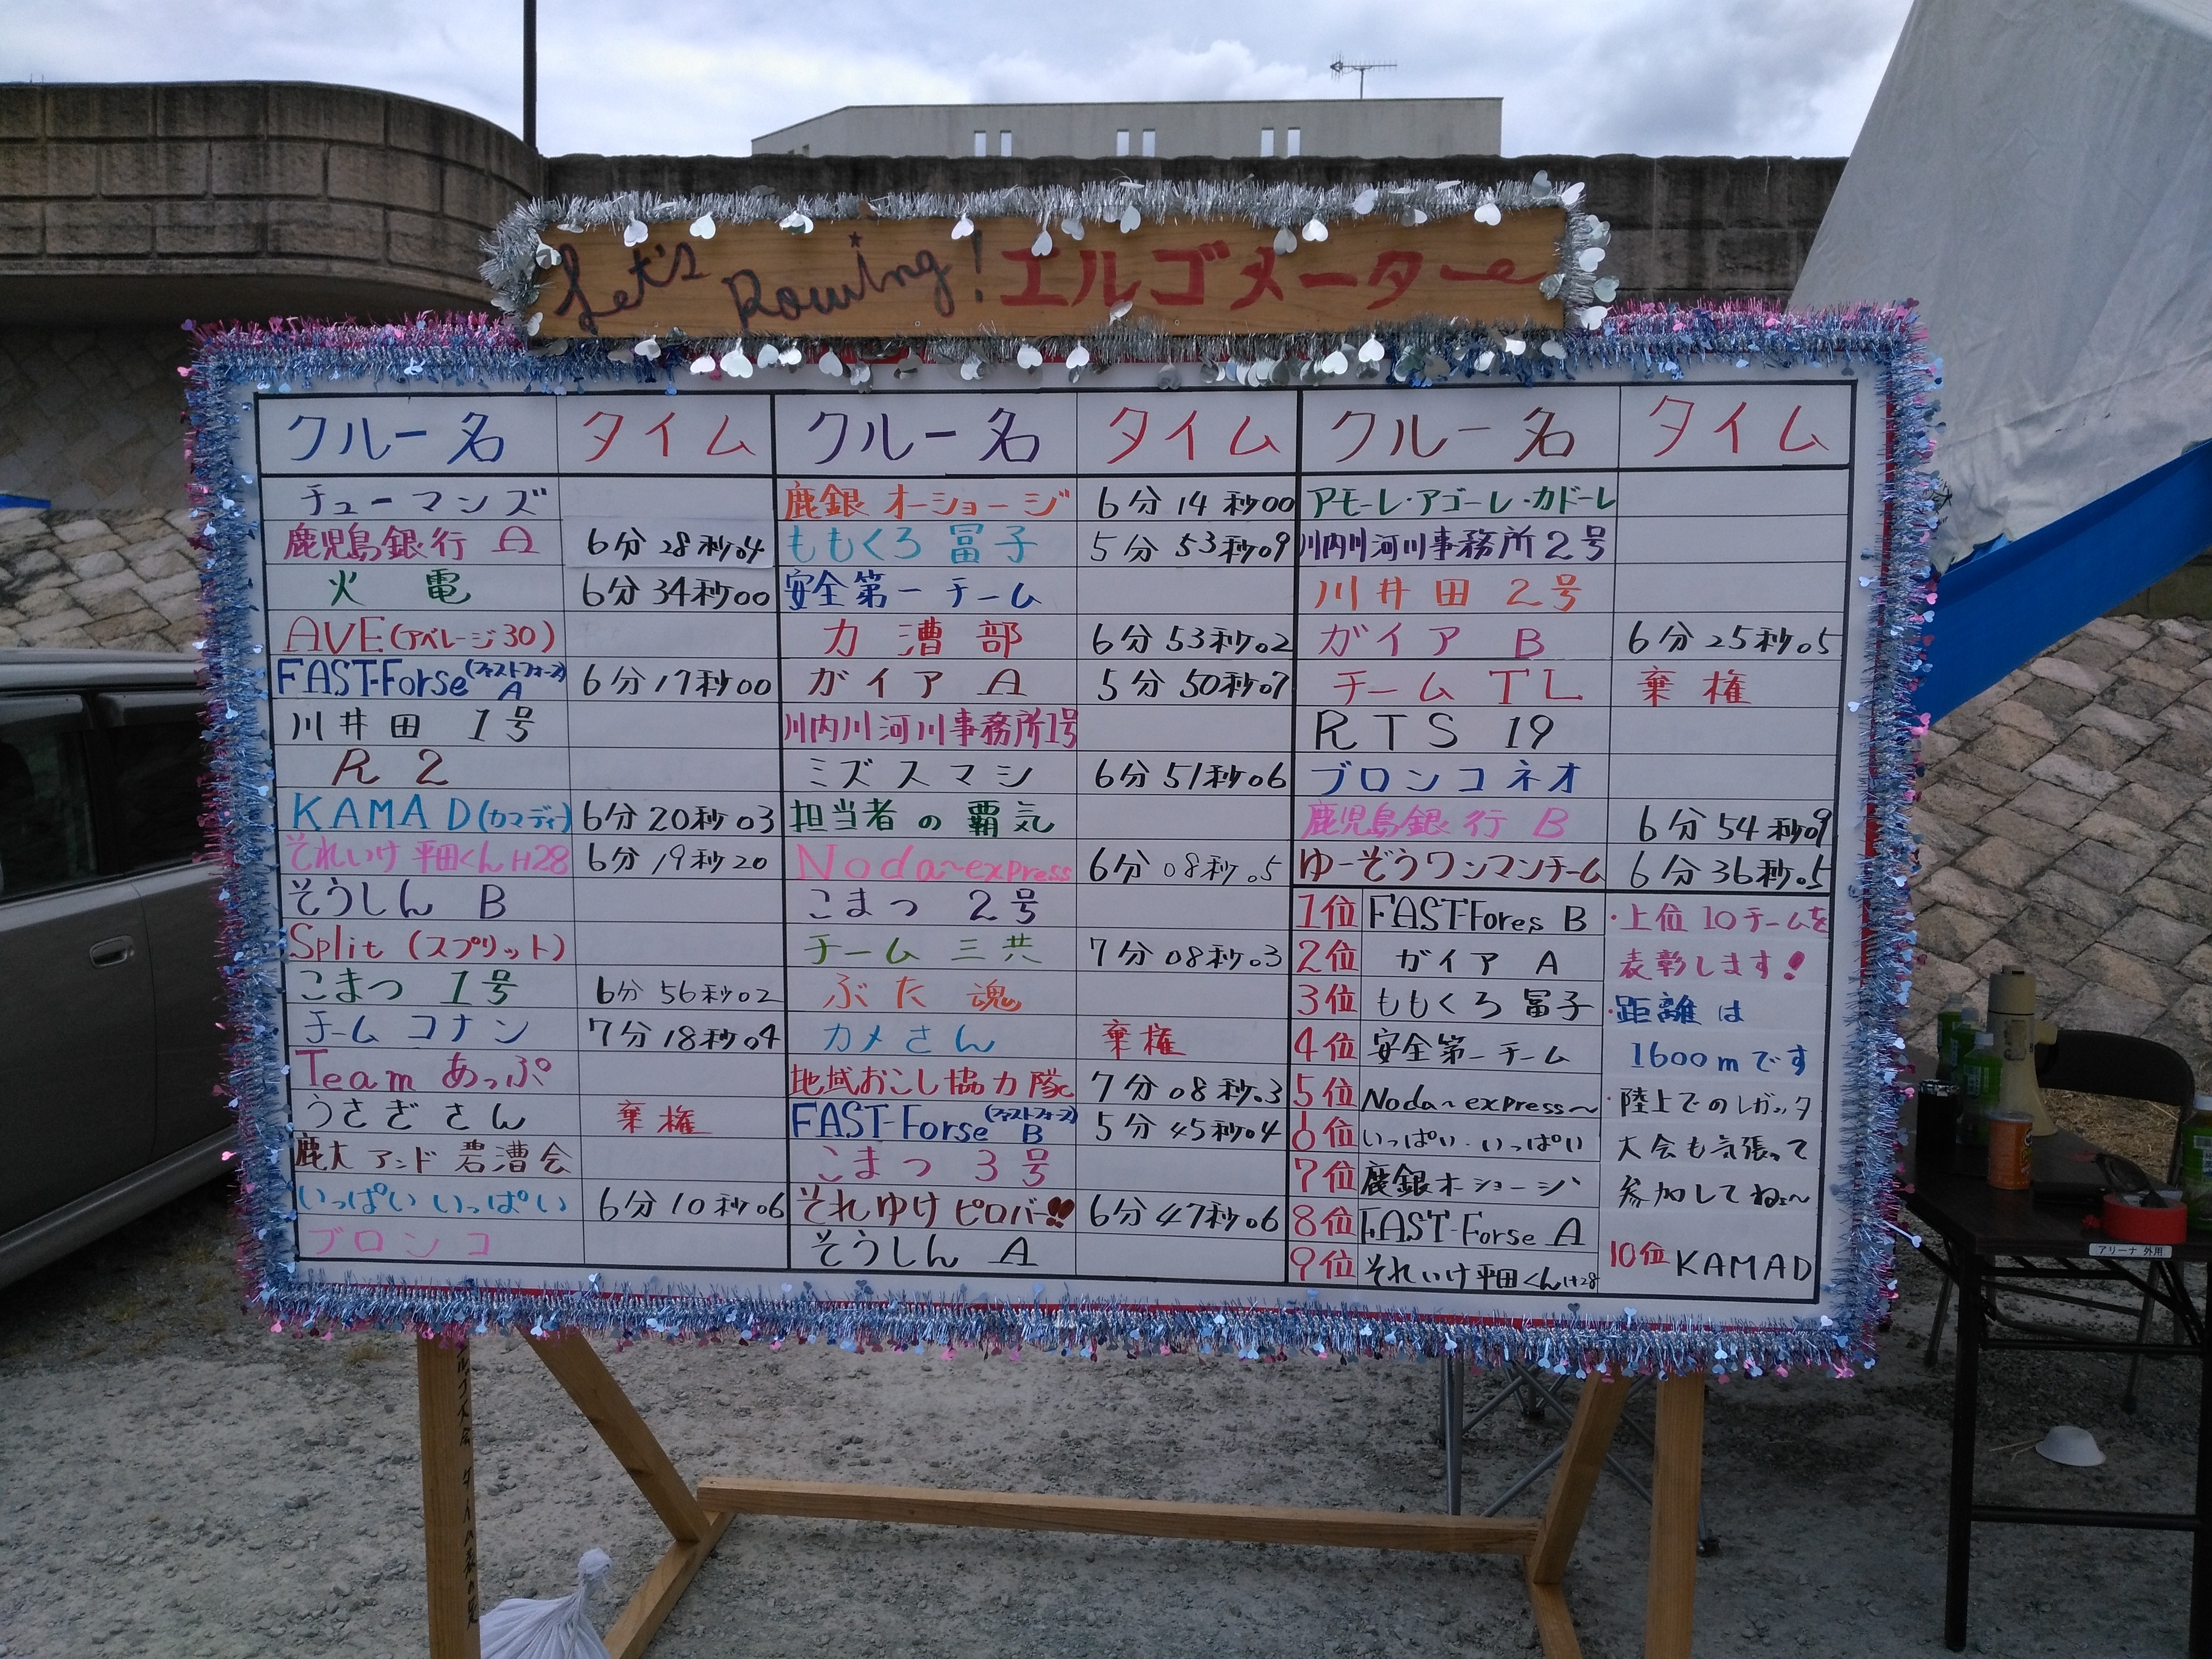 Let's Rowing! エルゴメーター
クルー名 タイム クルー名 タイム クルー名 タイム
チューマンズ 鹿銀 オーショージ 6分14秒00 アモーレ・アゴーレ・カドーレ
鹿児島銀行 A 6分28秒04 ももくろ冨子 5分53秒09 川内川河川事務所2号
火電 6分34秒00 安全第一チーム 川井田 2号
AVE(アベレージ30) 力漕部 6分53秒02 ガイア B 6分25秒05
FAST-Forse(ファストフォース) A 6分17秒00 ガイア A 5分50秒07 チーム TL 棄権
川井田 1号 川内川河川事務所1号 RTS 19
R2 ミズスマシ 6分51秒06 ブロンコネオ
KAMAD(カマディ) 6分20秒03 担当者の覇気 鹿児島銀行 B 6分54秒09
それいけ平田くんH28 6分19秒20 Noda~express 6分08秒05 ゆーぞうワンマンチーム 6分36秒05
そうしん B こまつ 2号 1位 FAST-Fores B ・上位10チームを
Split(スプリット) チーム三共 7分08秒03 2位 ガイア A 表彰します!
こまつ 1号 6分56秒02 ぶた魂 3位 ももくろ冨子 ・距離は
チームコナン 7分18秒04 カメさん 棄権 4位 安全第一チーム 1600mです
Team あっぷ 地域おこし協力隊 7分08秒03 5位 Noda~express~ ・陸上でのレガッタ
うさぎさん 棄権 FAST-Forse(ファストフォース) B 5分45秒04 6位 いっぱい・いっぱい 大会も気張って
鹿大アンド碧漕会 こまつ 3号 7位 鹿銀オーショージ 参加してねぇ~
いっぱい いっぱい 6分10秒06 それゆけピロバー!! 6分47秒06 8位 FAST-Forse A
ブロンコ そうしん A 9位 それいけ平田くんH28 10位 KAMAD
アリーナ 外用